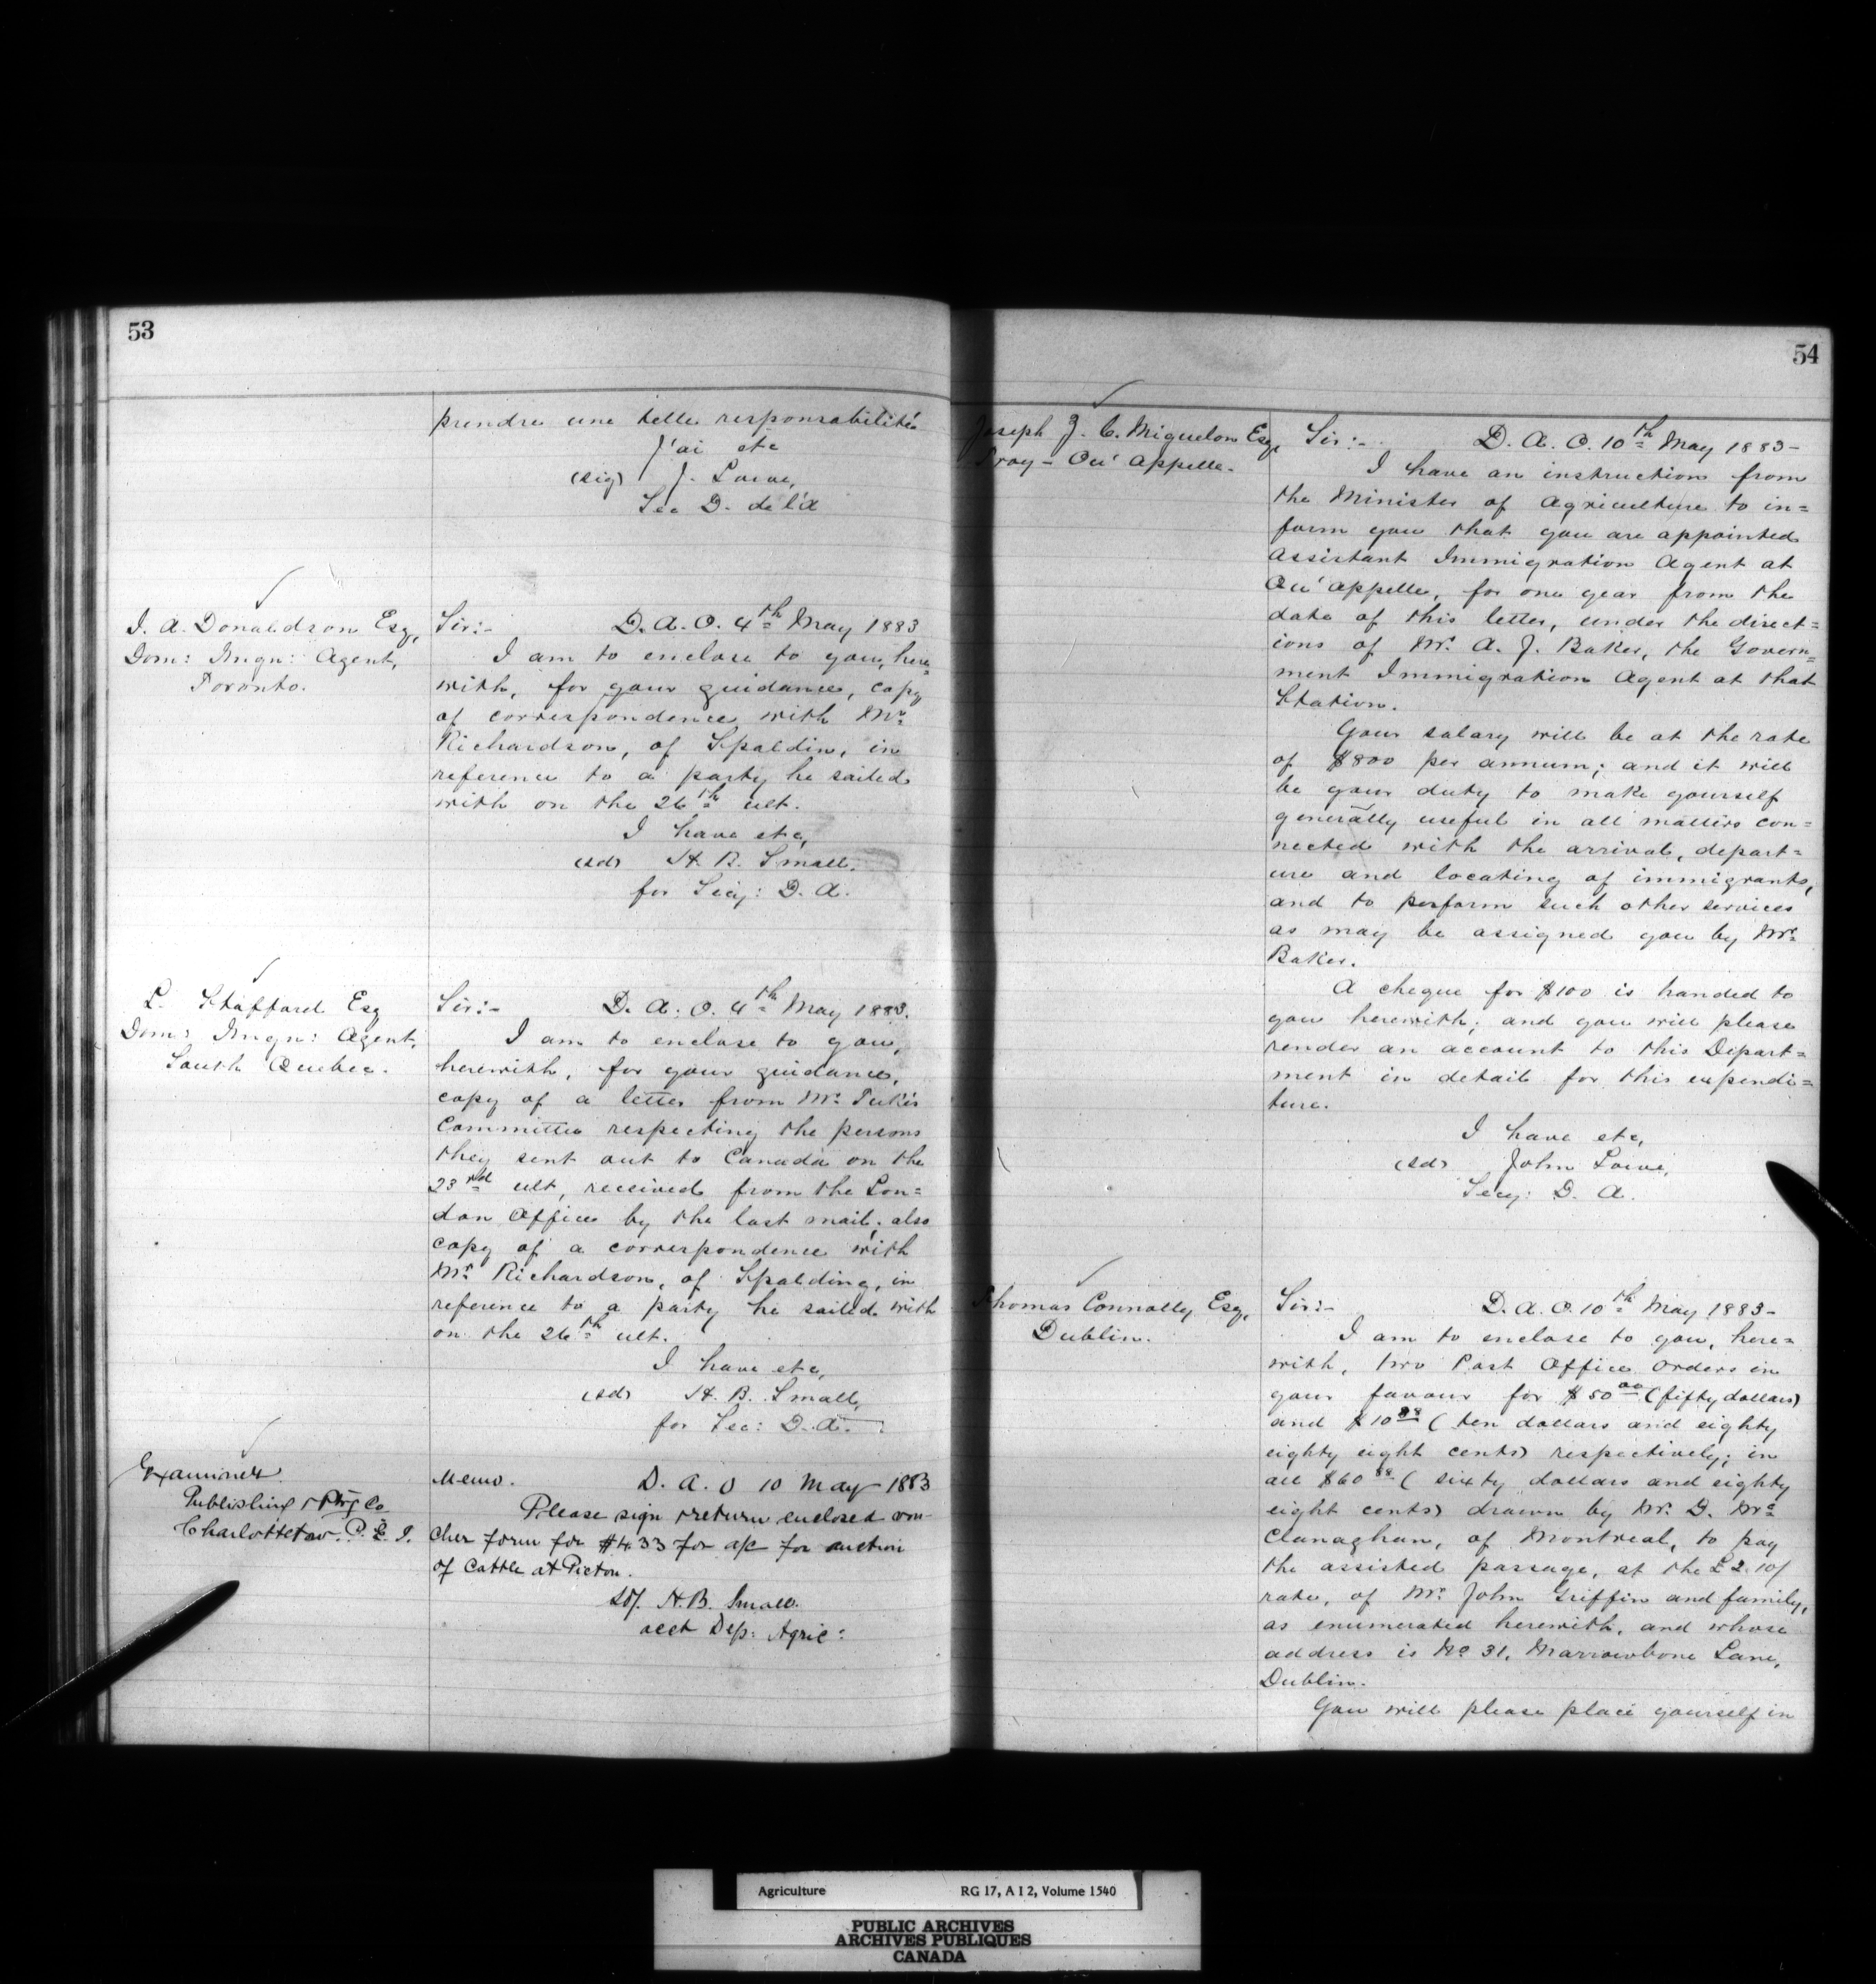 53
prendre une telle responsabilité
J'ai etc
(sig) J. Lowe,
Sec D. de l'A
J. A. Donaldson Esq,
Dom: Imgn: Agent,
Toronto.
Sir:- D. A. O. 4th May 1883
I am to enclose to you, here=
with, for your guidance, copy
of correspondence with Mr
Richardson, of Spaldin, in
reference to a party he sailed
with on the 26th ult.
I have etc,
(sd) H. B. Small.
for Secy: D. A.
L. Stafford Esq
Dom: Imgn: Agent,
South Quebec.
Sir:- D. A. O. 4th May 1883.
I am to enclose to you,
herewith, for your guidance,
copy of a letter from Mr. Tuke's
Committee respecting the persons
they sent out to Canada on the
23rd ult, received from the Lon=
don Office by the last mail; also
copy of a correspondence with
Mr Richardson, of Spalding, in
reference to a party he sailed with
on the 26th ult.
I have etc,
(sd) H. B. Small,
for Sec: D. A.
Examiner
Publishing & Ptg Co
Charlottetow. P. E. I.
Memo. D. A. O 10 May 1883
Please sign & return enclosed vou-
cher form for $4.33 for a/c for auction
of Cattle at Pictou.
Sd/. H. B. Small.
acct Dep: Agric:
54
Joseph Z. C. Miquelon Esq,
Troy - Qu'Appelle.
Sir:- D. A. O. 10th May 1883-
I have an instruction from
the Minister of Agriculture to in=
form you that you are appointed
Assistant Immigration Agent at
Qu'Appelle, for one year from the
date of this letter, under the direct=
ions of Mr. A. J. Baker, the Govern=
ment Immigration Agent at that
Station.
Your salary will be at the rate
of $800 per annum; and it will
be your duty to make yourself
generally useful in all matters con=
nected with the arrival, depart=
ure and locating of immigrants,
and to perform such other services
as may be assigned you by Mr.
Baker.
A cheque for $100 is handed to
you herewith; and you will please
render an account to this Depart=
ment in detail for this expendi=
ture.
I have etc,
(sd) John Lowe,
Secy: D. A.
Thomas Connolly Esq,
Dublin.
Sir:- D. A. O. 10th May 1883-
I am to enclose to you, here=
with, two Post Office Orders in
your favour for $50 00 (fifty dollars)
and $10 88 (ten dollars and eighty
eighty eight cents) respectively; in
all $60 88 (sixty dollars and eighty
eight cents) drawn by Mr. D. Mc
Clanaghan, of Montreal, to pay
the assisted passage, at the £2.10/
rate, of Mr. John Griffin and family,
as enumerated herewith, and whose
address is No 31, Marrowbone Lane,
Dublin.
You will please place yourself in
Agriculture RG 17, A I 2, Volume 1540
PUBLIC ARCHIVES
ARCHIVES PUBLIQUES
CANADA